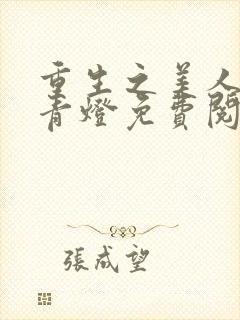 重生之美人
青燈免費閱
張成望